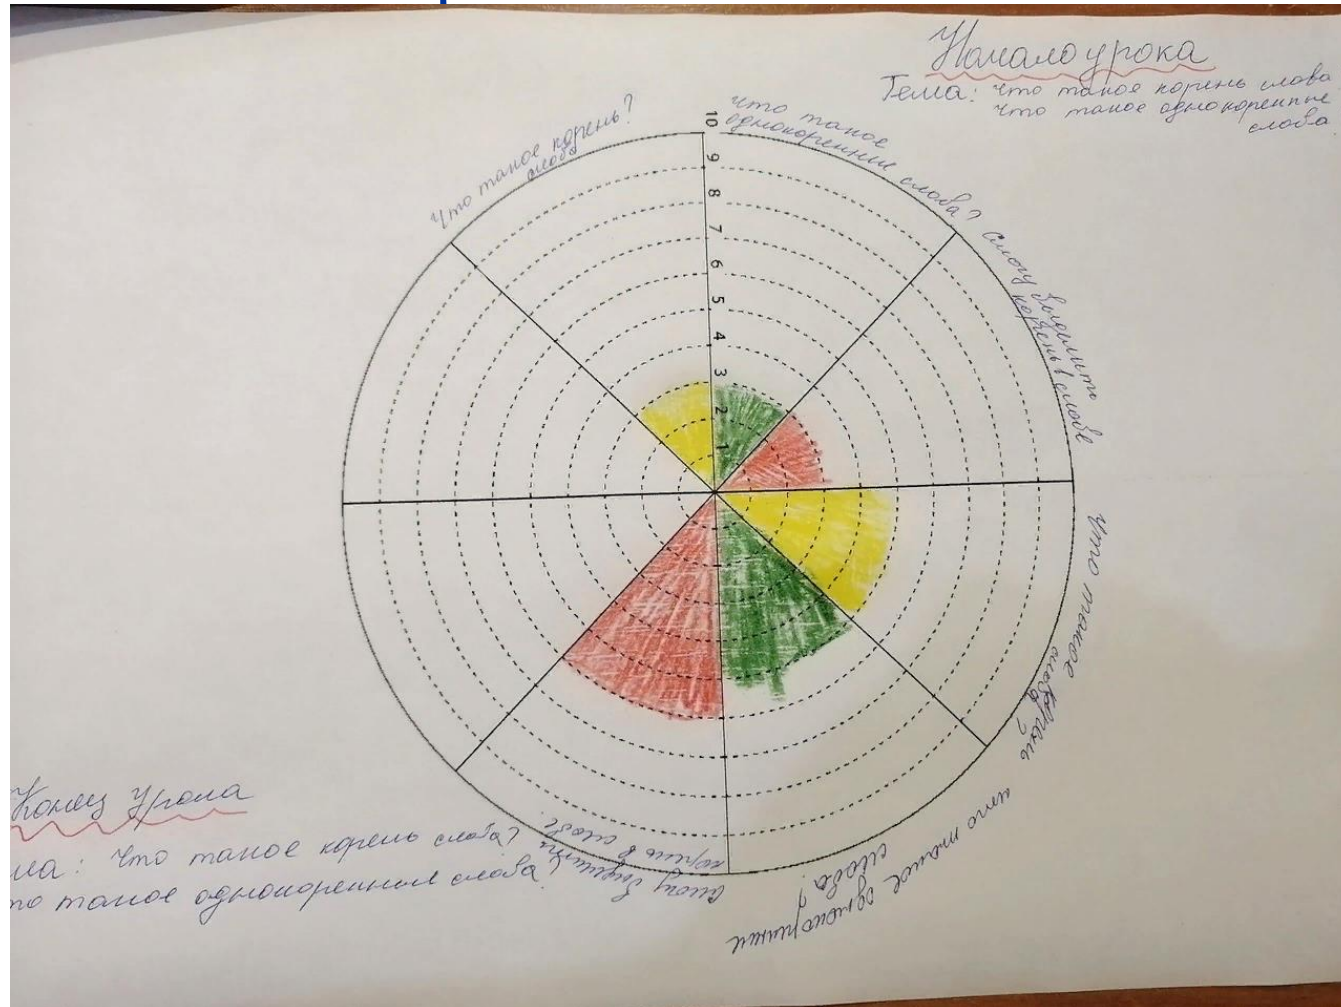 Начало урока
Тема: что такое корень слова
что такое однокоренные
слова
Что такое корень?
слова
10
9
8
7
6
5
4
3
2
1
что такое
однокоренные слова?
Смогу выделить
корень в слове
Что такое корень
слова?
что такое
слова?
Смогу
корень в слове.
Конец урока
Что такое корень слова?
такое однокоренные слова?